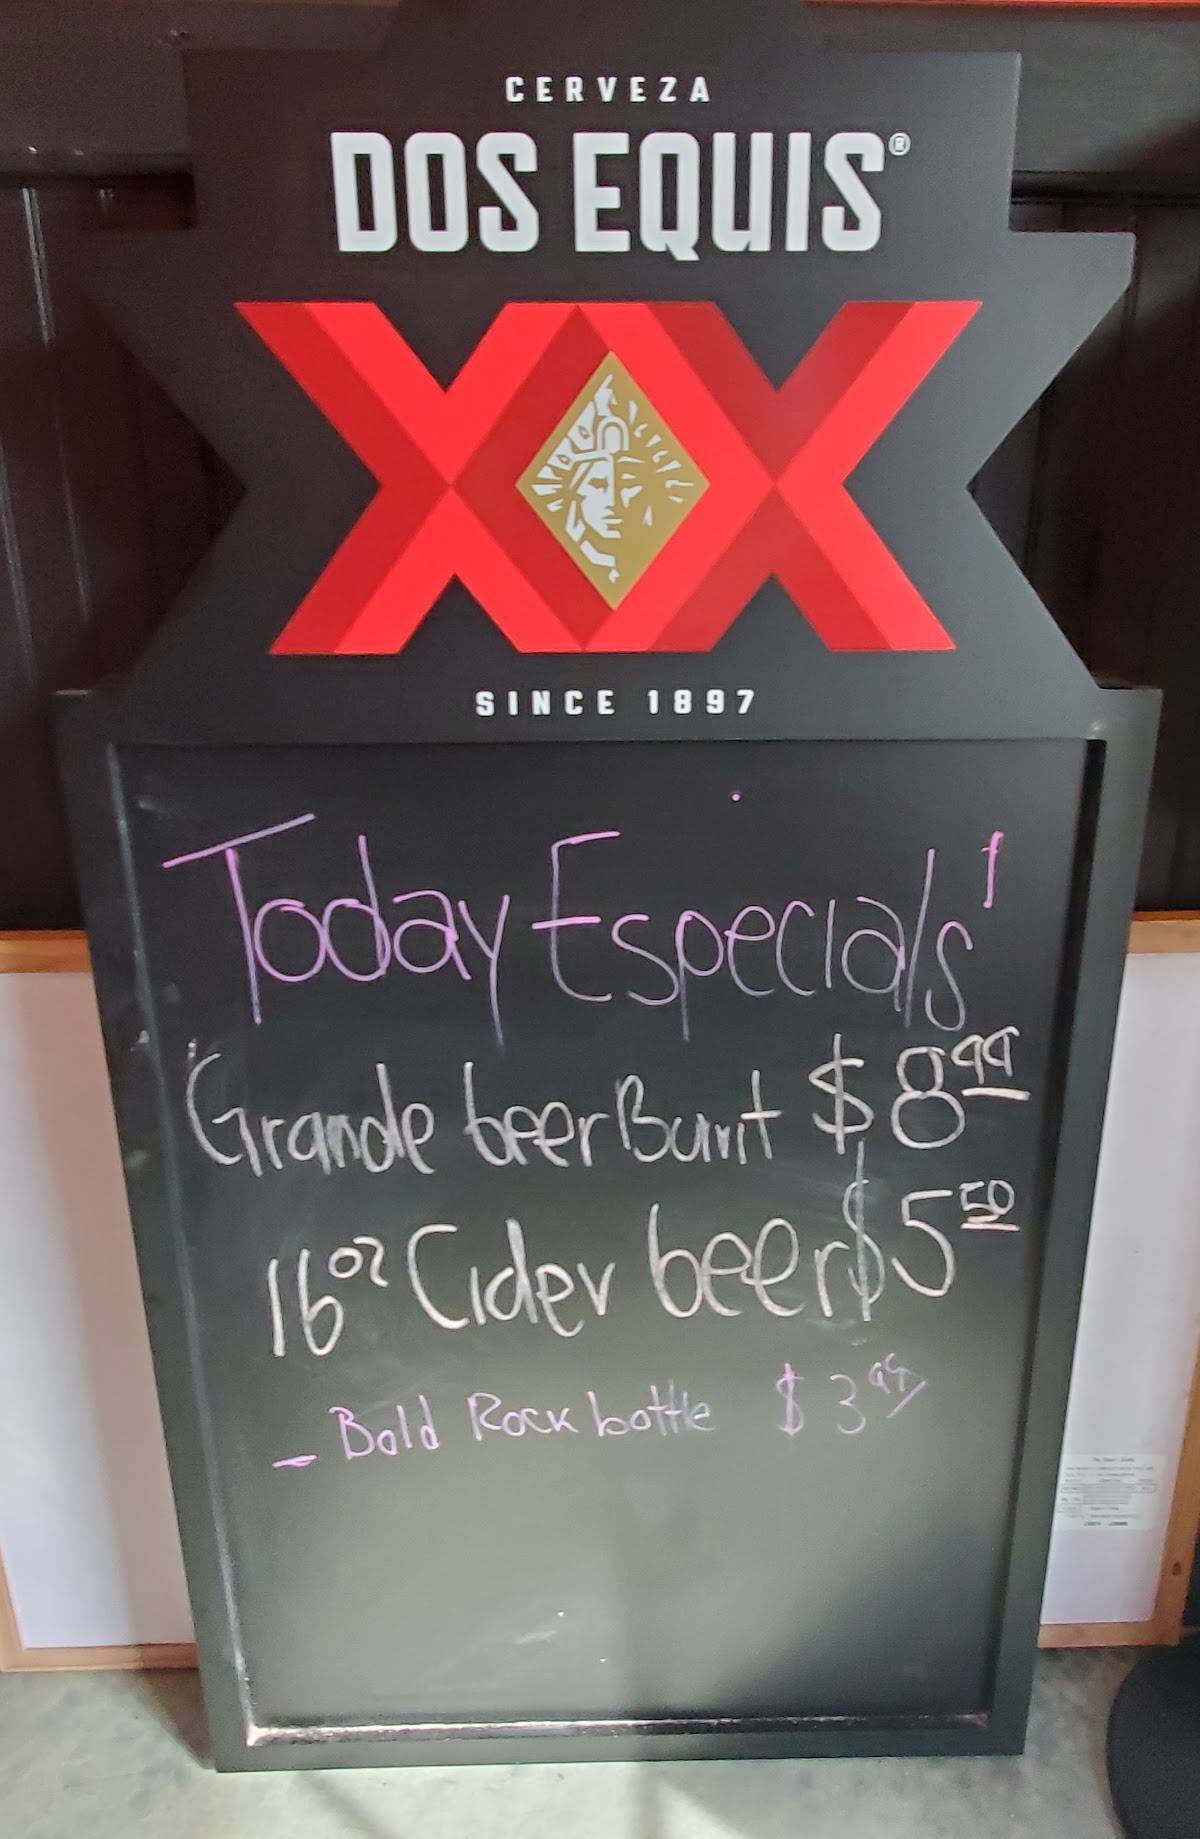 CERVEZA
DOS EQUIS®
XX
SINCE 1897
Today Especials!
Grande beer Burrit $8.99
16oz Cider beer $5.50
- Bold Rock bottle $3.99